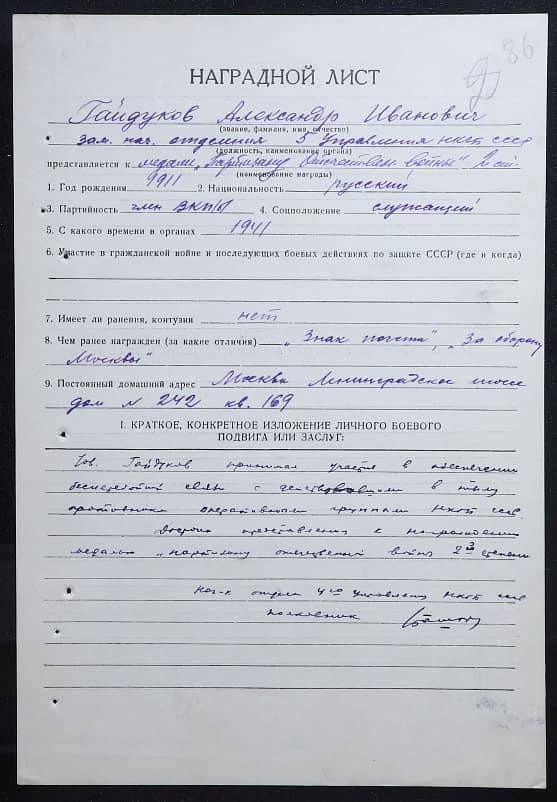 86
НАГРАДНОЙ ЛИСТ
Гайдуков Александр Иванович
(звание, фамилия, имя, отчество)
зам. нач. отделения 5 Управления НКГБ СССР
(должность, наименование органа)
представляется к медали „Партизану Отечествен. войны" 2 ст.
(наименование награды)
1. Год рождения 1911 2. Национальность русский
3. Партийность член ВКП/б/ 4. Соцположение служащий
5. С какого времени в органах 1941
6. Участие в гражданской войне и последующих боевых действиях по защите СССР (где и когда)
7. Имеет ли ранения, контузии нет
8. Чем ранее награжден (за какие отличия) „Знак почета", „За оборону
Москвы"
9. Постоянный домашний адрес Москва Ленинградское шоссе
дом № 242 кв. 169
I. КРАТКОЕ, КОНКРЕТНОЕ ИЗЛОЖЕНИЕ ЛИЧНОГО БОЕВОГО
ПОДВИГА ИЛИ ЗАСЛУГ:
Тов. Гайдуков принимал участие в обеспечении
связи с действовавшими в тылу
противника оперативными группами НКГБ СССР.
Достоин представления к награждению
медалью „партизану отечественной войны 2й степени
Нач-к отдела 4го управления НКГБ СССР
полковник